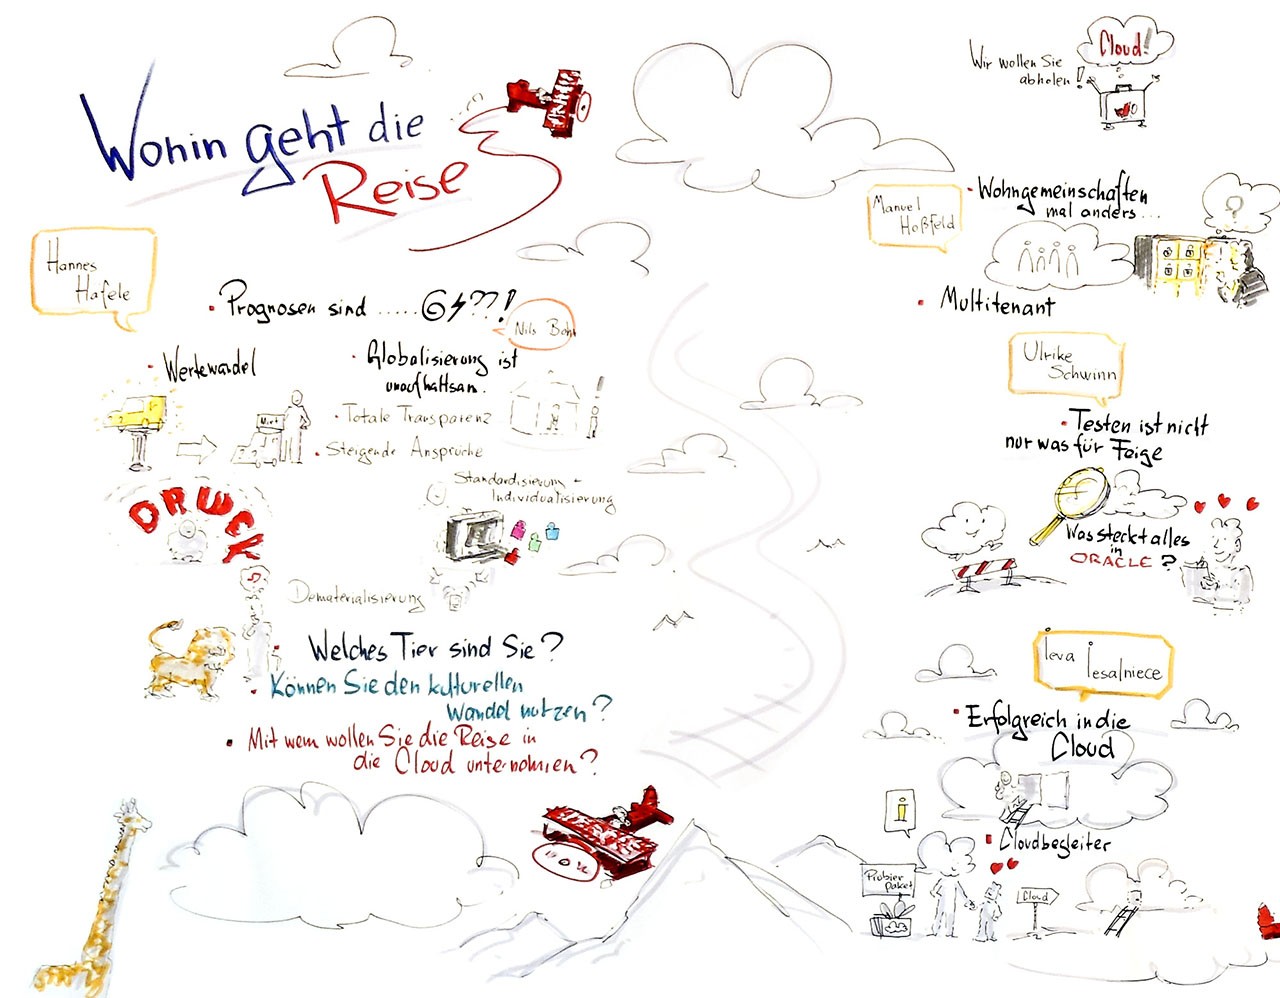 Wohin geht die
Reise
Hannes
Hafele
Prognosen sind ..... ??!
Nils Bohr
Wertewandel
Globalisierung ist
unaufhaltsam.
Totale Transparenz
Steigende Ansprüche
DRUCK
Standardisierung -
Individualisierung
Dematerialisierung
Welches Tier sind Sie?
Können Sie den kulturellen
Wandel nutzen?
Mit wem wollen Sie die Reise in
die Cloud unternehmen?
Cloud!
Wir wollen Sie
abholen!
Manuel
Hoßfeld
Wohngemeinschaften
mal anders...
Multitenant
Ulrike
Schwinn
Testen ist nicht
nur was für Feige
Was steckt alles
in
ORACLE?
Ieva
Jesalniece
Erfolgreich in die
Cloud
i
Cloudbegleiter
Probier
paket
Cloud